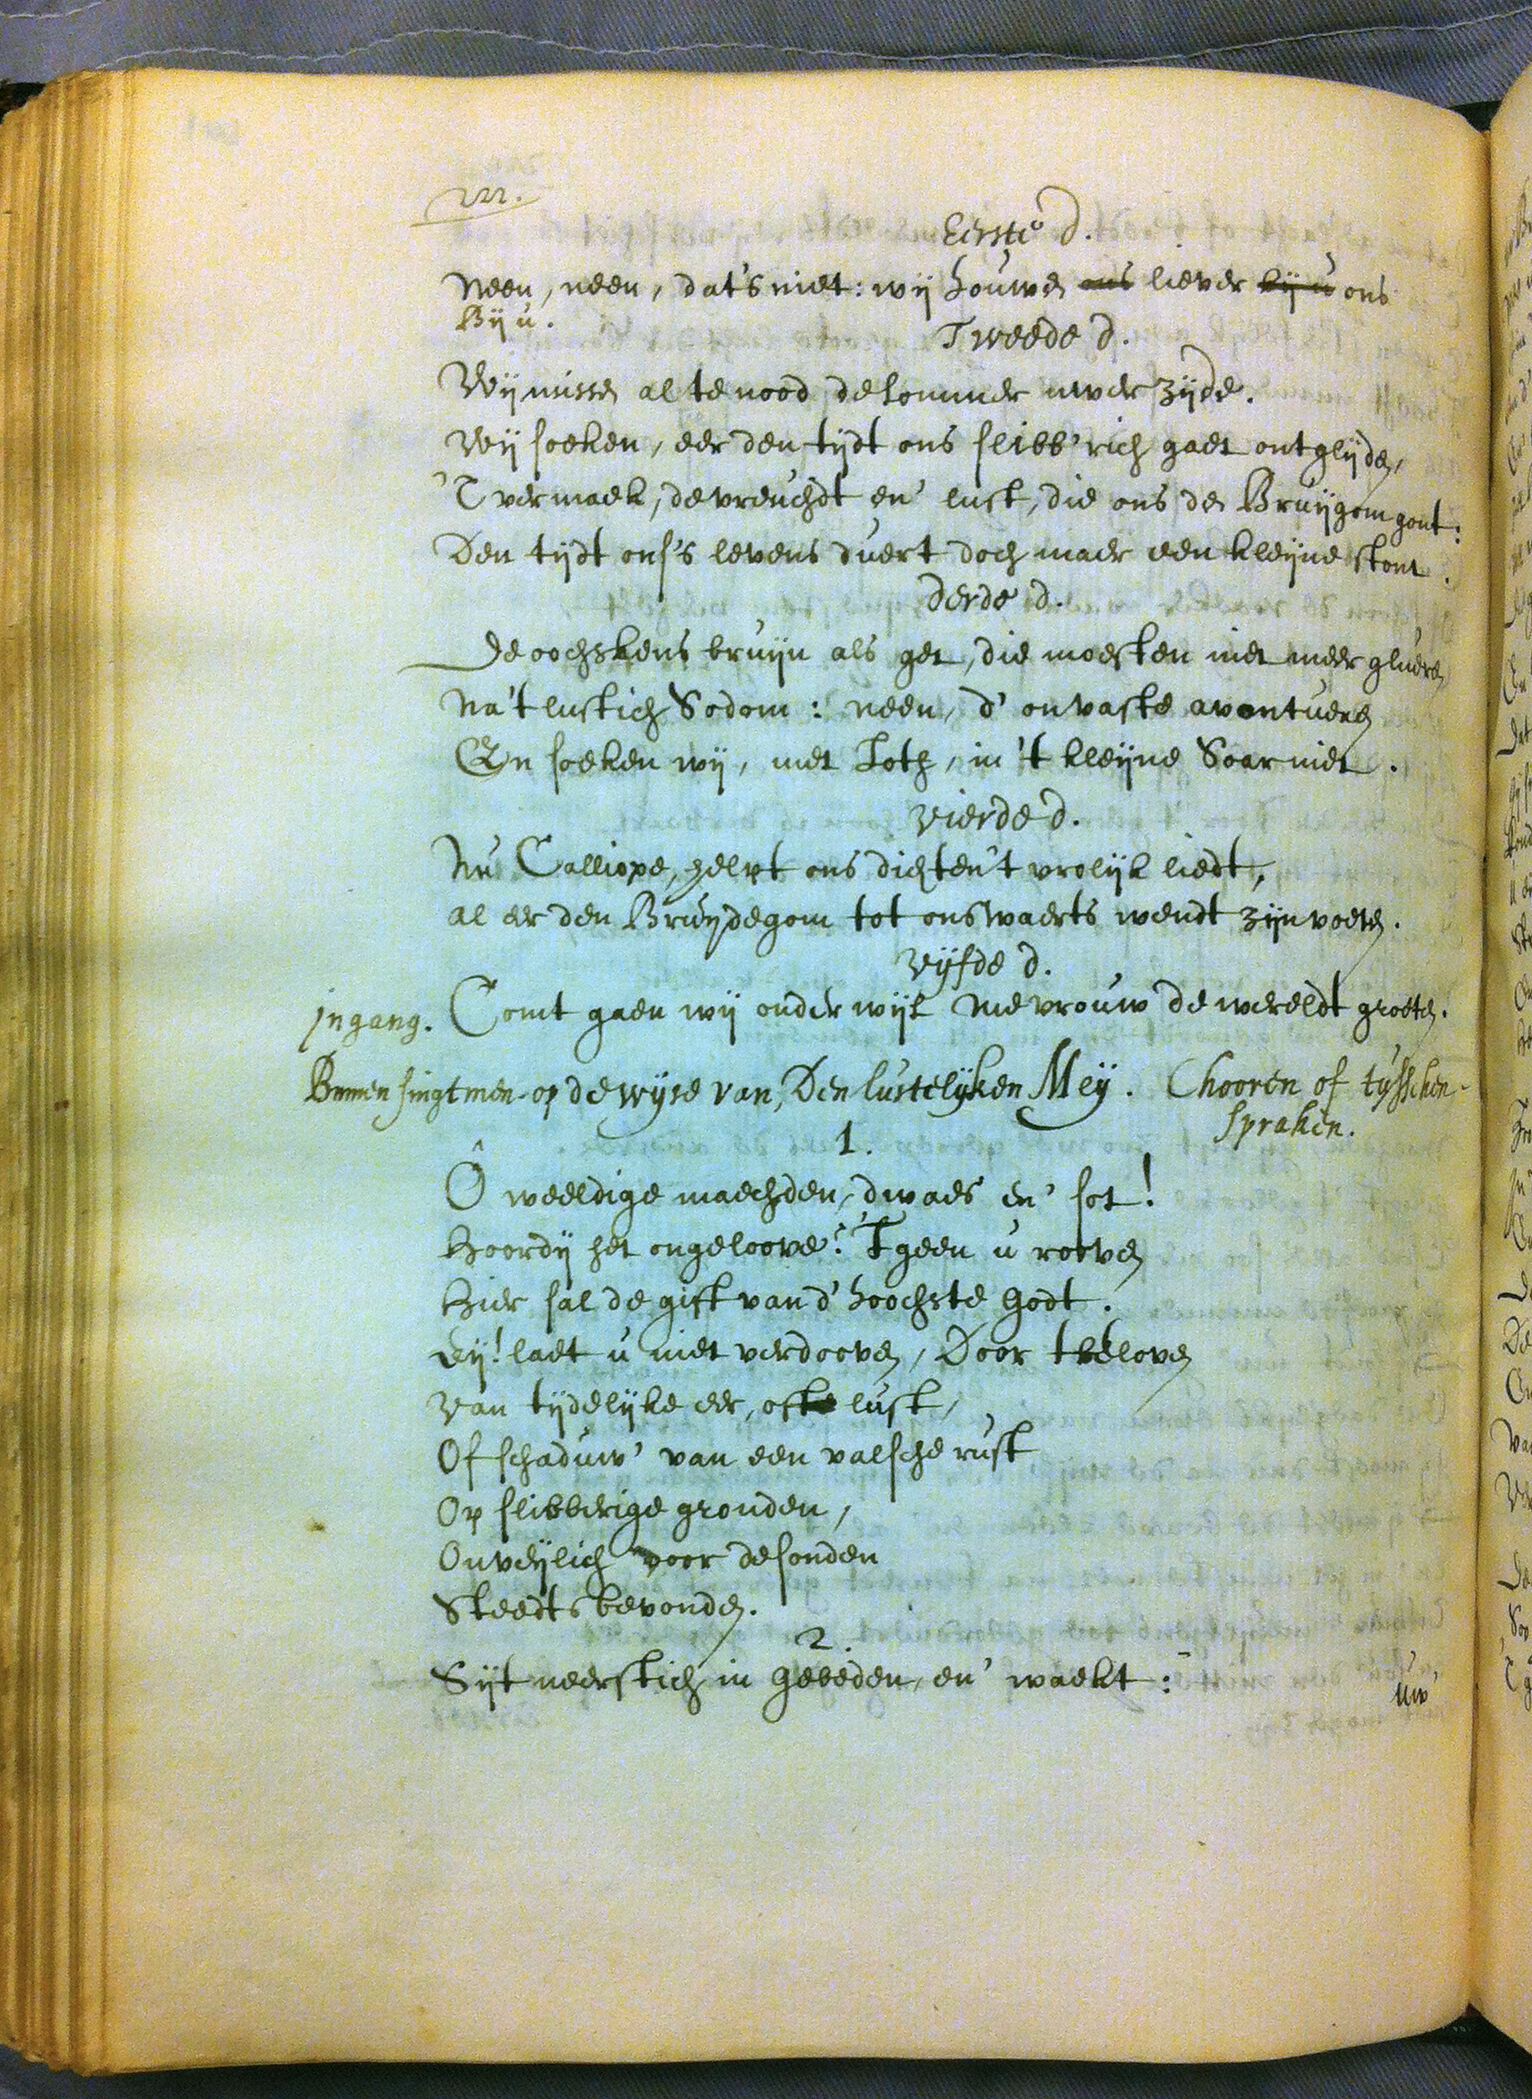 222.
Eerste d.
Neen, neen, dat's niet: wij houwen ons liever bij u ons
Bij u.
Tweede d.
Wij missen al te nood de lommer uwer zijde.
Wij soeken, eer den tijdt ons slibb'rich gaet ontglijden,
'T vermaek, de vreuchdt en' lust, die ons de Bruijgom gont:
Den tijdt ons's levens duert doch maer een kleijne stont.
derde d.
De oochskens bruijn als get, die moesten niet meer gluren
Na 't lustich Sodom: neen, d' onvaste avontueren
En soeken wij, met Loth, in 't kleijne Soar niet.
Vierde d.
Nu Calliope, helpt ons dichten 't vrolijk liedt,
al eer den Bruijdegom tot onswaerts wendt zijn voeten.
Vijfde d.
Comt gaen wij onderwijl Mevrouw de wereldt groeten.
jngang.
Binnen singt men op de wijse van, Den lustelijken Meij. Chooren of tusschen-
spraken.
1.
Ô weeldige maechden, dwaes en' sot!
Hoordij het ongeloove? 'T geen u rooven
Hier sal de gift van d' hoochste Godt.
Eij! laet u niet verdooven, Door tbeloven
Van tijdelijke eer, ofte lust,
Of schaduw' van een valsche rust
Op slibberige gronden,
Onveijlich voor de sonden
Steedts bevonden.
2.
Sijt neerstich in gebeden, en' waekt:
uw'